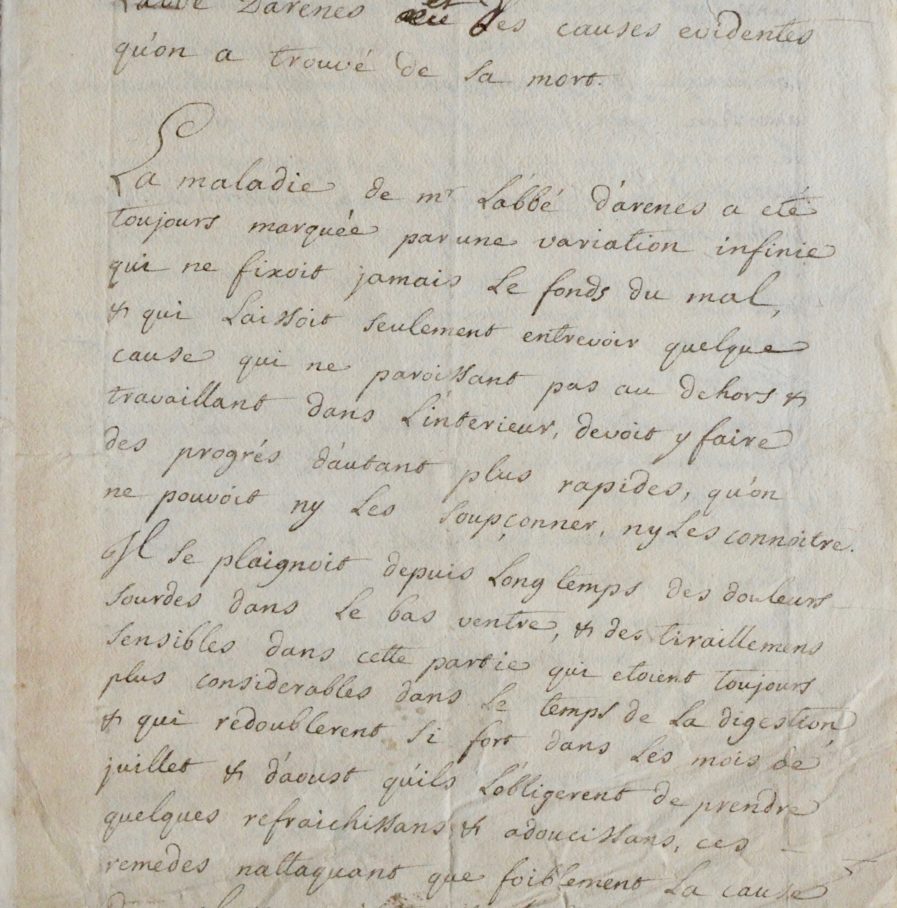 Labbé Darenes et des causes evidentes
qu'on a trouvé de sa mort.
La maladie de mr Lábbé d'árenes a eté
toujours marquée par une variation infinie
qui ne fixoit jamais Le fonds du mal,
& qui Laissoit seulement entrevoir quelque
cause qui ne paroissant pas au dehors &
travaillant dans L'interieur, devoit y faire
des progrés d'autant plus rapides, qu'on
ne pouvoit ny Les soupçonner, ny Les connoitre.
Il se plaignoit depuis Long temps des douleurs
sourdes dans Le bas ventre, & des tiraillemens
sensibles dans cette partie qui etoient toujours
plus considerables dans Le temps de La digestion,
& qui redoublerent si fort dans Les mois de
juillet & d'aoust qu'ils L'obligerent de prendre
quelques refraichissans & adoucissans, ces
remedes nattaquant que foiblement La cause